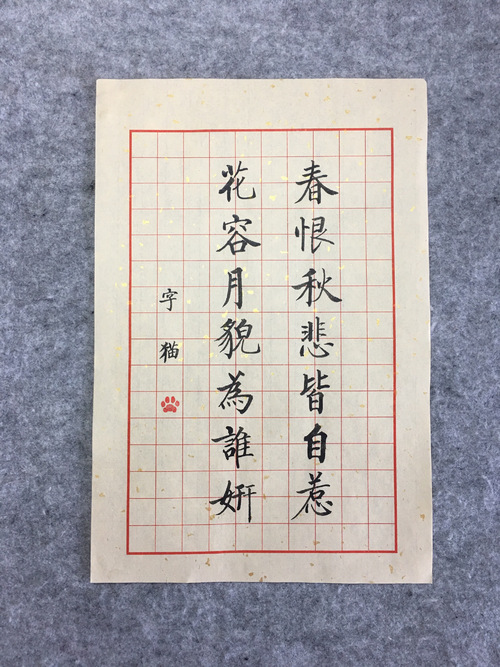 春恨秋悲皆自惹
花容月貌為誰妍
字猫